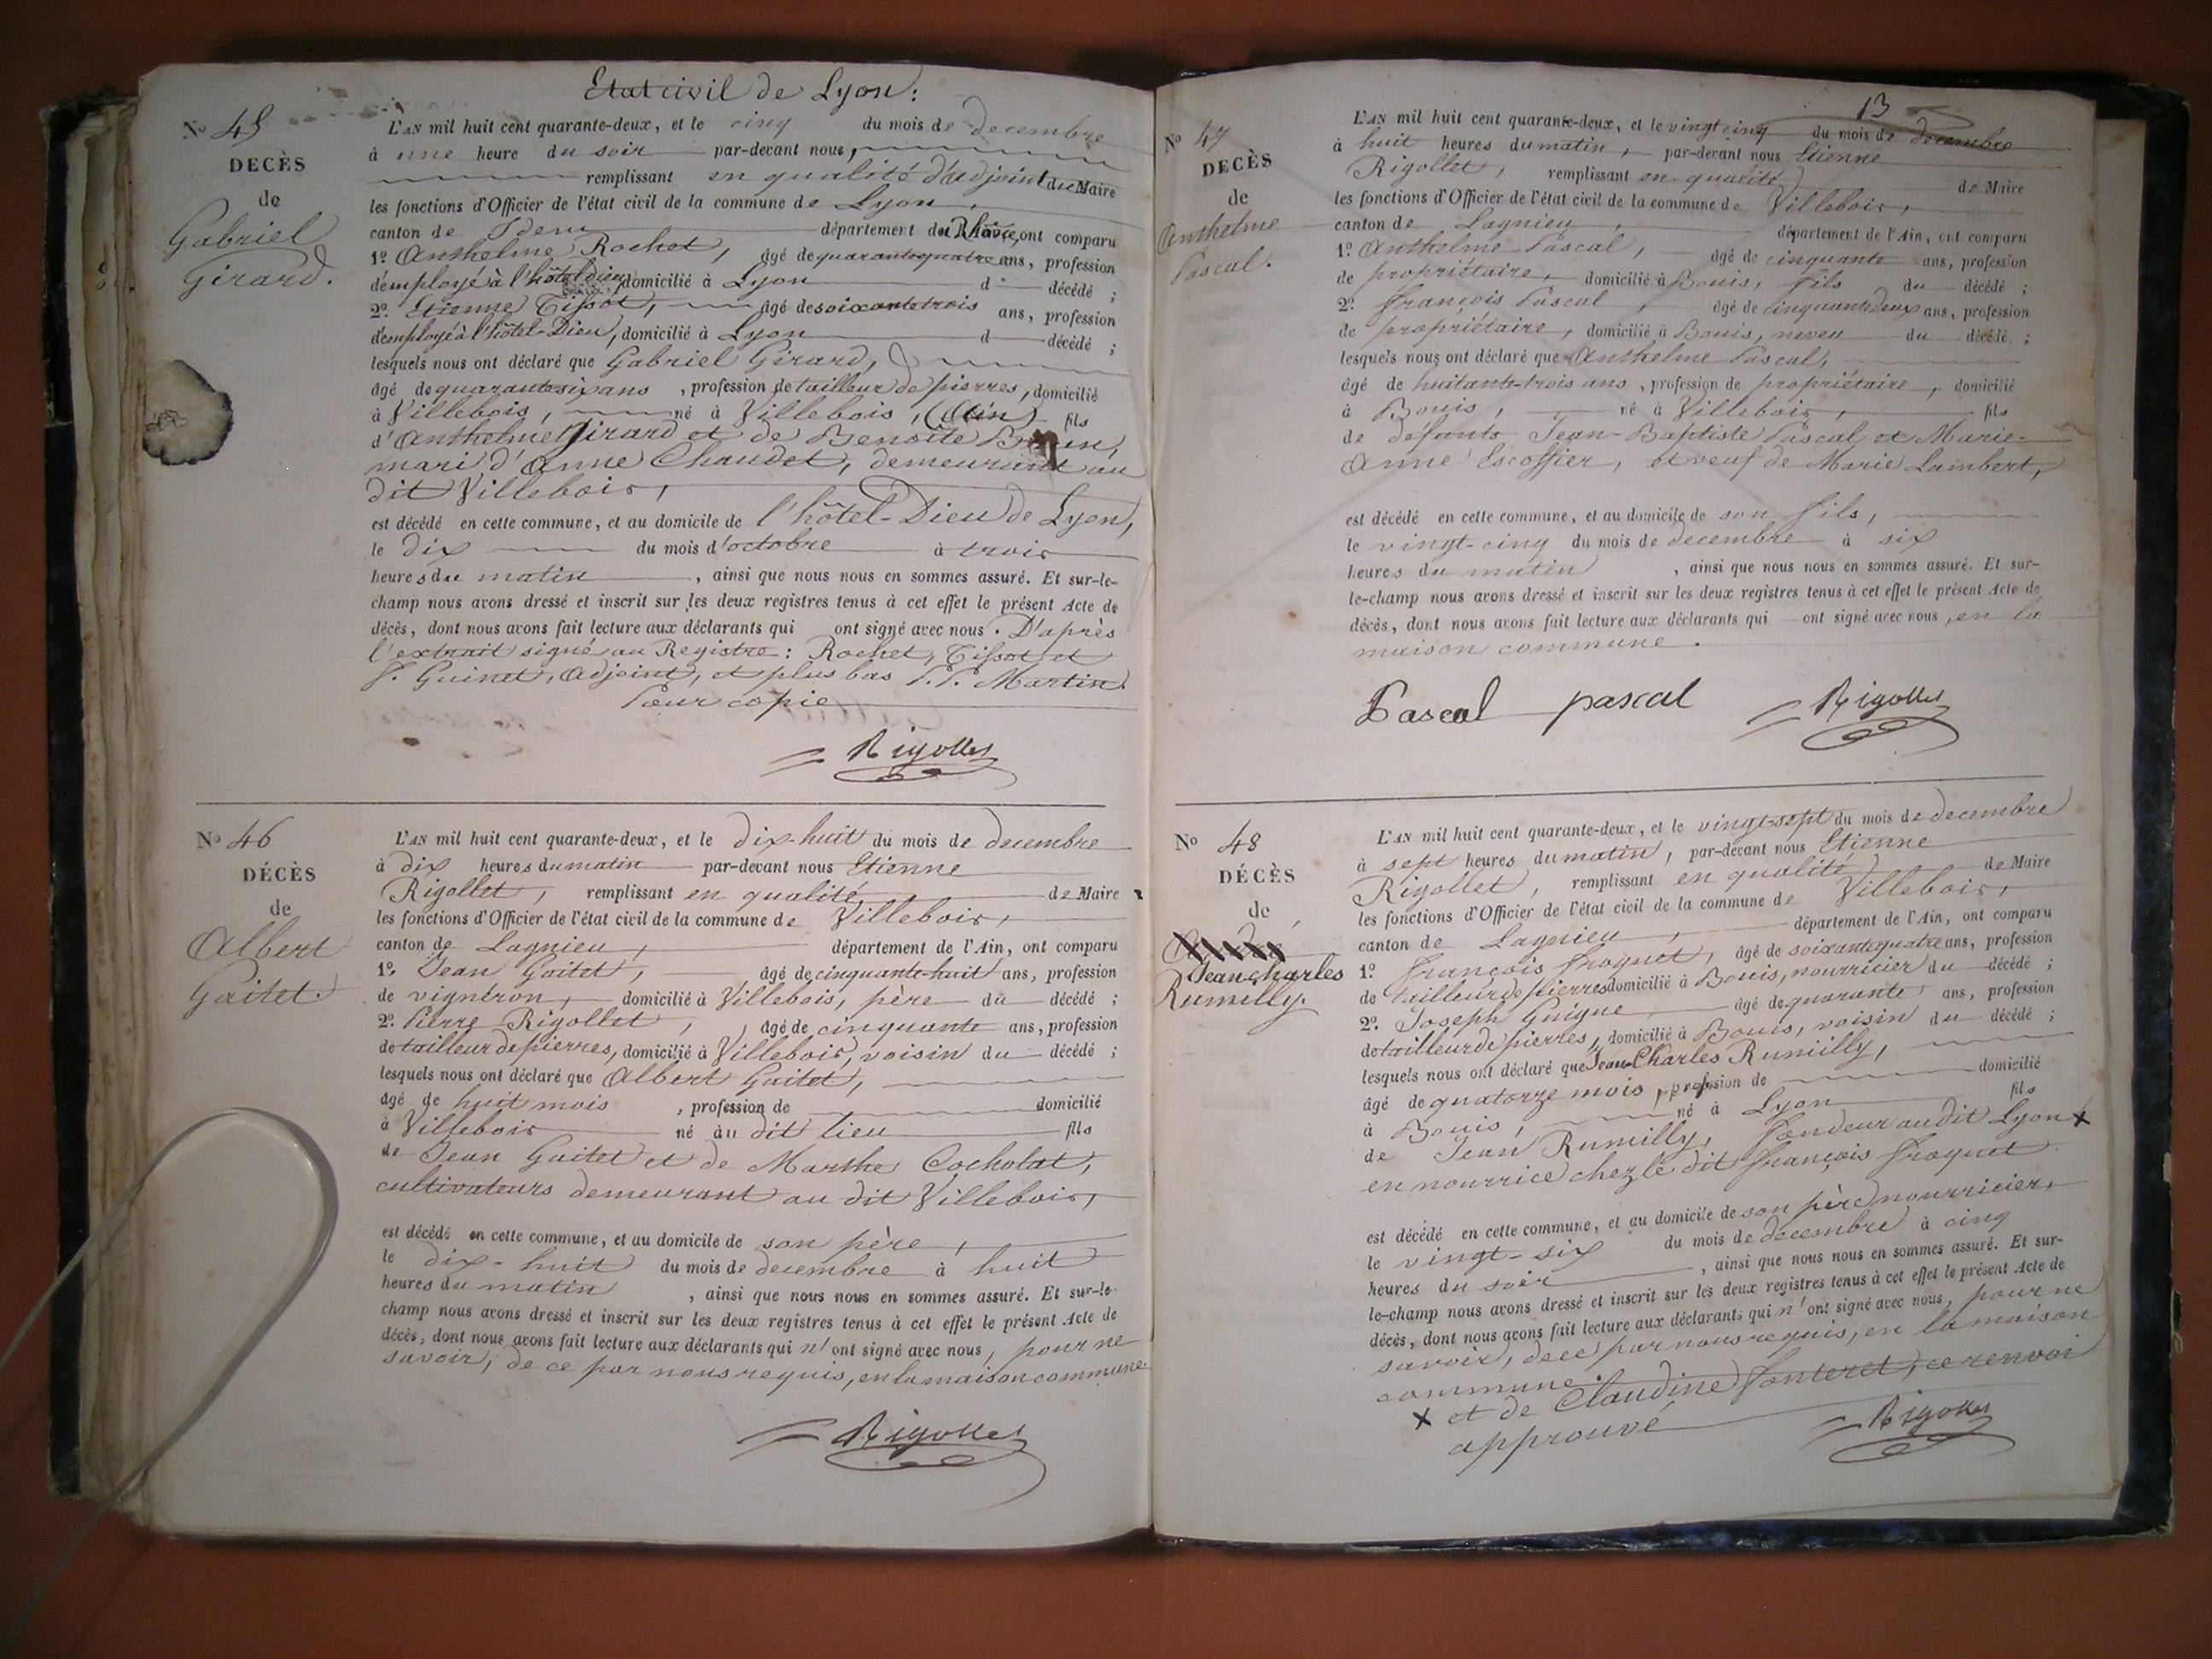 Etat civil de Lyon :
N° 45
DECÈS
de
Gabriel
Girard.
L'AN mil huit cent quarante-deux, et le cinq du mois de decembre
à une heure du soir par-devant nous,
remplissant en qualité d'adjoint du Maire
les fonctions d'Officier de l'état civil de la commune de Lyon,
canton de Idem département du Rhône, ont comparu
1° Anthelme Rochet, âgé de quarante quatre ans, profession
d'employé à l'hôtel dieu domicilié à Lyon d décédé ;
2° Etienne Tissot, âgé de soixante trois ans, profession
d'employé à l'hôtel-Dieu, domicilié à Lyon d décédé ;
lesquels nous ont déclaré que Gabriel Girard,
âgé de quarante six ans , profession de tailleur de pierres, domicilié
à Villebois, né à Villebois, (Ain) fils
d'Anthelme Girard et de Benoîte
mari d'Anne Chaudet, demeurant au
dit Villebois,
est décédé en cette commune, et au domicile de l'hôtel-Dieu de Lyon,
le dix du mois d'octobre à trois
heures du matin , ainsi que nous nous en sommes assuré. Et sur-le-
champ nous avons dressé et inscrit sur les deux registres tenus à cet effet le présent Acte de
décès, dont nous avons fait lecture aux déclarants qui ont signé avec nous. D'après
l'extrait signé au Registre : Rochet, Tissot et
F. Guinet, Adjoint, et plus bas P.P. Martin.
Pour copie
Rigollet
N° 46
DÉCÈS
de
Albert
Gaitet.
L'AN mil huit cent quarante-deux, et le dix-huit du mois de decembre
à dix heures du matin par-devant nous Etienne
Rigollet, remplissant en qualité de Maire
les fonctions d'Officier de l'état civil de la commune de Villebois,
canton de Lagnieu, département de l'Ain, ont comparu
1° Jean Gaitet, âgé de cinquante-huit ans, profession
de vignéron, domicilié à Villebois, père du décédé ;
2° Pierre Rigollet, âgé de cinquante ans, profession
de tailleur de pierres, domicilié à Villebois, voisin du décédé ;
lesquels nous ont déclaré que Albert Gaitet,
âgé de huit mois , profession de domicilié
à Villebois né au dit lieu fils
de Jean Gaitet et de Marthe Cocholat,
cultivateurs demeurant au dit Villebois,
est décédé en cette commune, et au domicile de son père,
le dix-huit du mois de decembre à huit
heures du matin , ainsi que nous nous en sommes assuré. Et sur-le-
champ nous avons dressé et inscrit sur les deux registres tenus à cet effet le présent Acte de
décès, dont nous avons fait lecture aux déclarants qui n'ont signé avec nous, pour ne
savoir, de ce par nous requis, en la maison commune
Rigollet
13
N° 47
DECÈS
de
Anthelme
Pascal.
L'AN mil huit cent quarante-deux, et le vingt cinq du mois de decembre
à huit heures du matin, par-devant nous Etienne
Rigollet, remplissant en qualité de Maire
les fonctions d'Officier de l'état civil de la commune de Villebois,
canton de Lagnieu, département de l'Ain, ont comparu
1° Anthelme Pascal, âgé de cinquante ans, profession
de propriétaire, domicilié à Bouis, fils du décédé ;
2° François Pascal, âgé de cinquante deux ans, profession
de propriétaire, domicilié à Bouis, neveu du décédé ;
lesquels nous ont déclaré que Anthelme Pascal,
âgé de huitante-trois ans , profession de propriétaire, domicilié
à Bouis, né à Villebois, fils
de défunts Jean-Baptiste Pascal et Marie-
Anne Escoffier, et veuf de Marie Lambert,
est décédé en cette commune, et au domicile de son fils,
le vingt-cinq du mois de decembre à six
heures du matin , ainsi que nous nous en sommes assuré. Et sur-
le-champ nous avons dressé et inscrit sur les deux registres tenus à cet effet le présent Acte de
décès, dont nous avons fait lecture aux déclarants qui ont signé avec nous, en la
maison commune.
Pascal pascal Rigollet
N° 48
DÉCÈS
de
Jean Charles
Rumilly.
L'AN mil huit cent quarante-deux, et le vingt-sept du mois de decembre
à sept heures du matin, par-devant nous Etienne
Rigollet, remplissant en qualité de Maire
les fonctions d'Officier de l'état civil de la commune de Villebois,
canton de Lagnieu, département de l'Ain, ont comparu
1° François Froquet, âgé de soixante quatre ans, profession
de tailleur de pierres domicilié à Bouis, nourricier du décédé ;
2° Joseph Guigue, âgé de quarante ans, profession
de tailleur de pierres, domicilié à Bouis, voisin du décédé ;
lesquels nous ont déclaré que Jean-Charles Rumilly,
âgé de quatorze mois, profession de domicilié
à Bouis, né à Lyon fils
de Jean Rumilly, fondeur audit Lyon x
en nourrice chez le dit François Froquet
est décédé en cette commune, et au domicile de son père nourricier,
le vingt-six du mois de decembre à cinq
heures du soir , ainsi que nous nous en sommes assuré. Et sur-
le-champ nous avons dressé et inscrit sur les deux registres tenus à cet effet le présent Acte de
décès, dont nous avons fait lecture aux déclarants qui n'ont signé avec nous, pour ne
savoir, de ce par nous requis, en la maison
commune.
x et de Claudine Fonteret, ce renvoi
approuvé
Rigollet